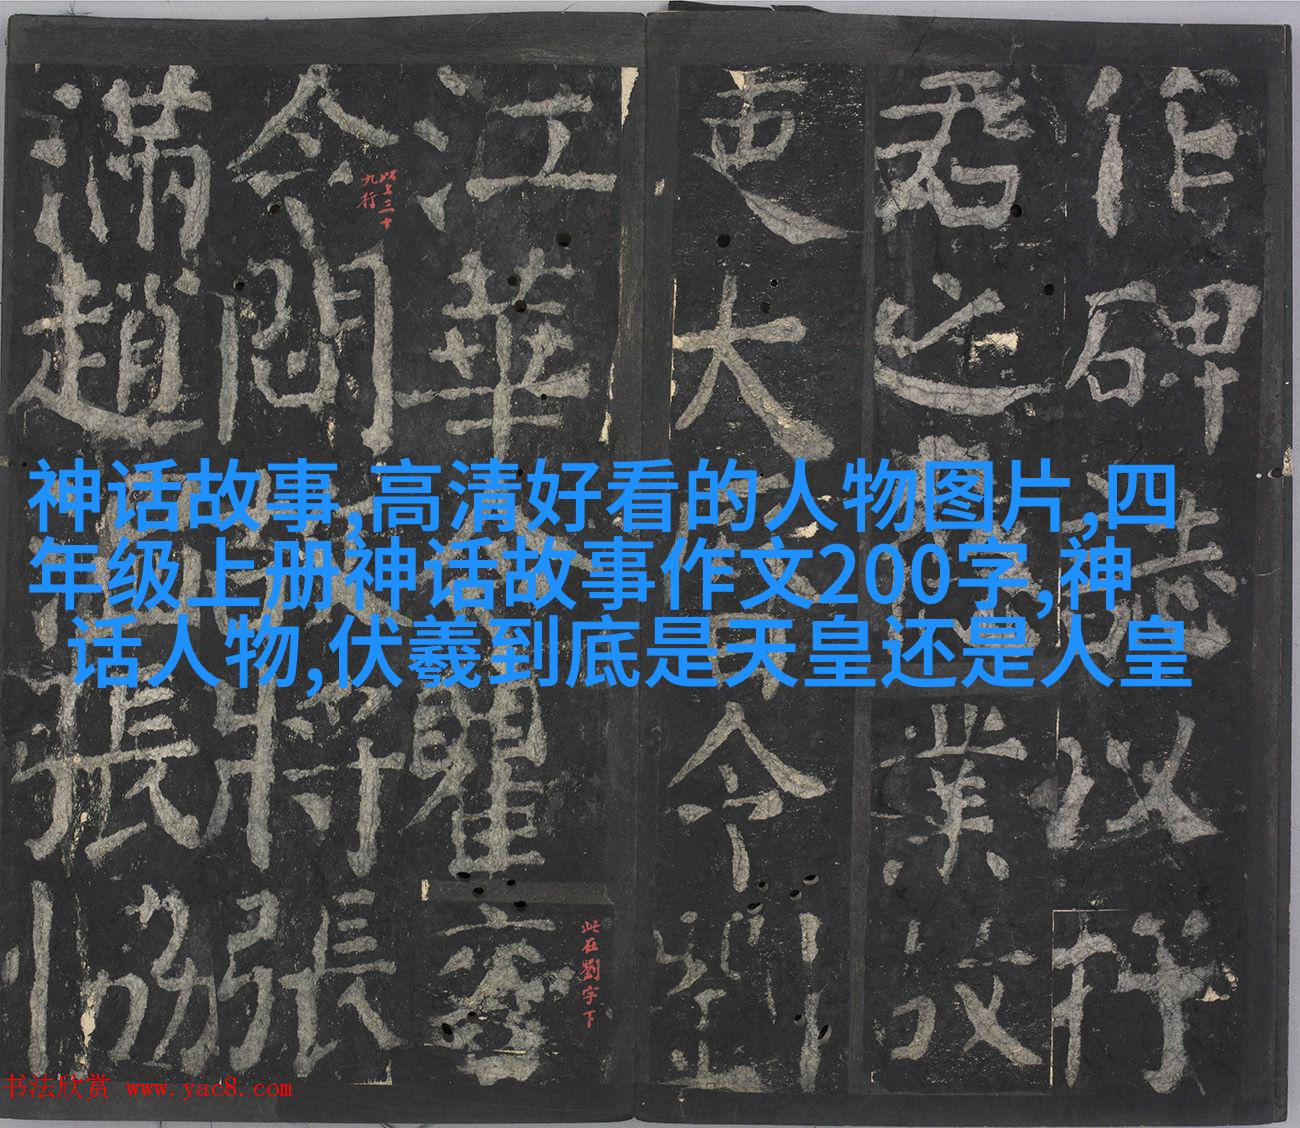 神话故事,高清好看的人物图片,四
年级上册神话故事作文200字,神
话人物,伏羲到底是天皇还是人皇
作碑
以行
君之
業故
吏大
令劉
江華
瞿
令間
將張
滿趙
張協
此上三十
九行
此在劉字下
书法欣赏 www.yac8.com